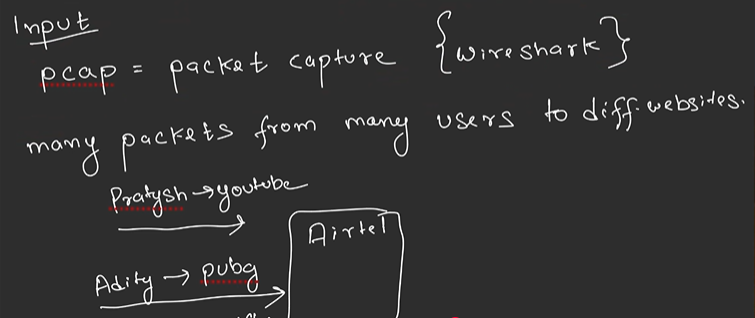 Input
pcap = packet capture {wireshark}
many packets from many users to diff. websites.
Pratysh → youtube
Airtel
Adity → pubg